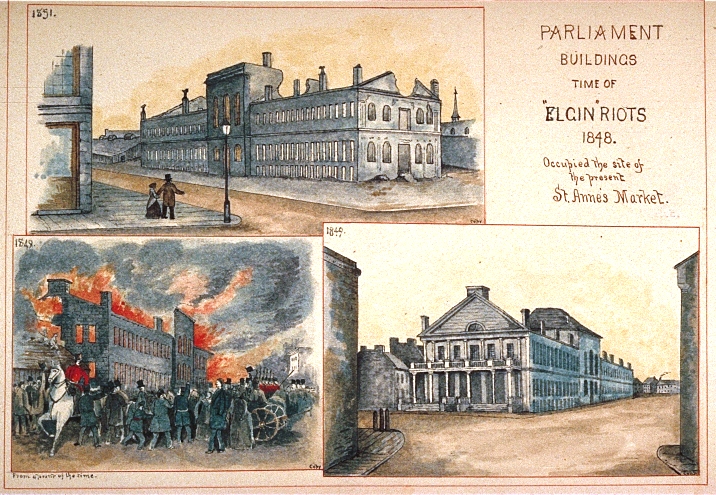 1851.
PARLIAMENT
BUILDINGS
TIME OF
"ELGIN" RIOTS
1848.
Occupied the site of
the present
St. Anne's Market.
1849.
From a print of the time.